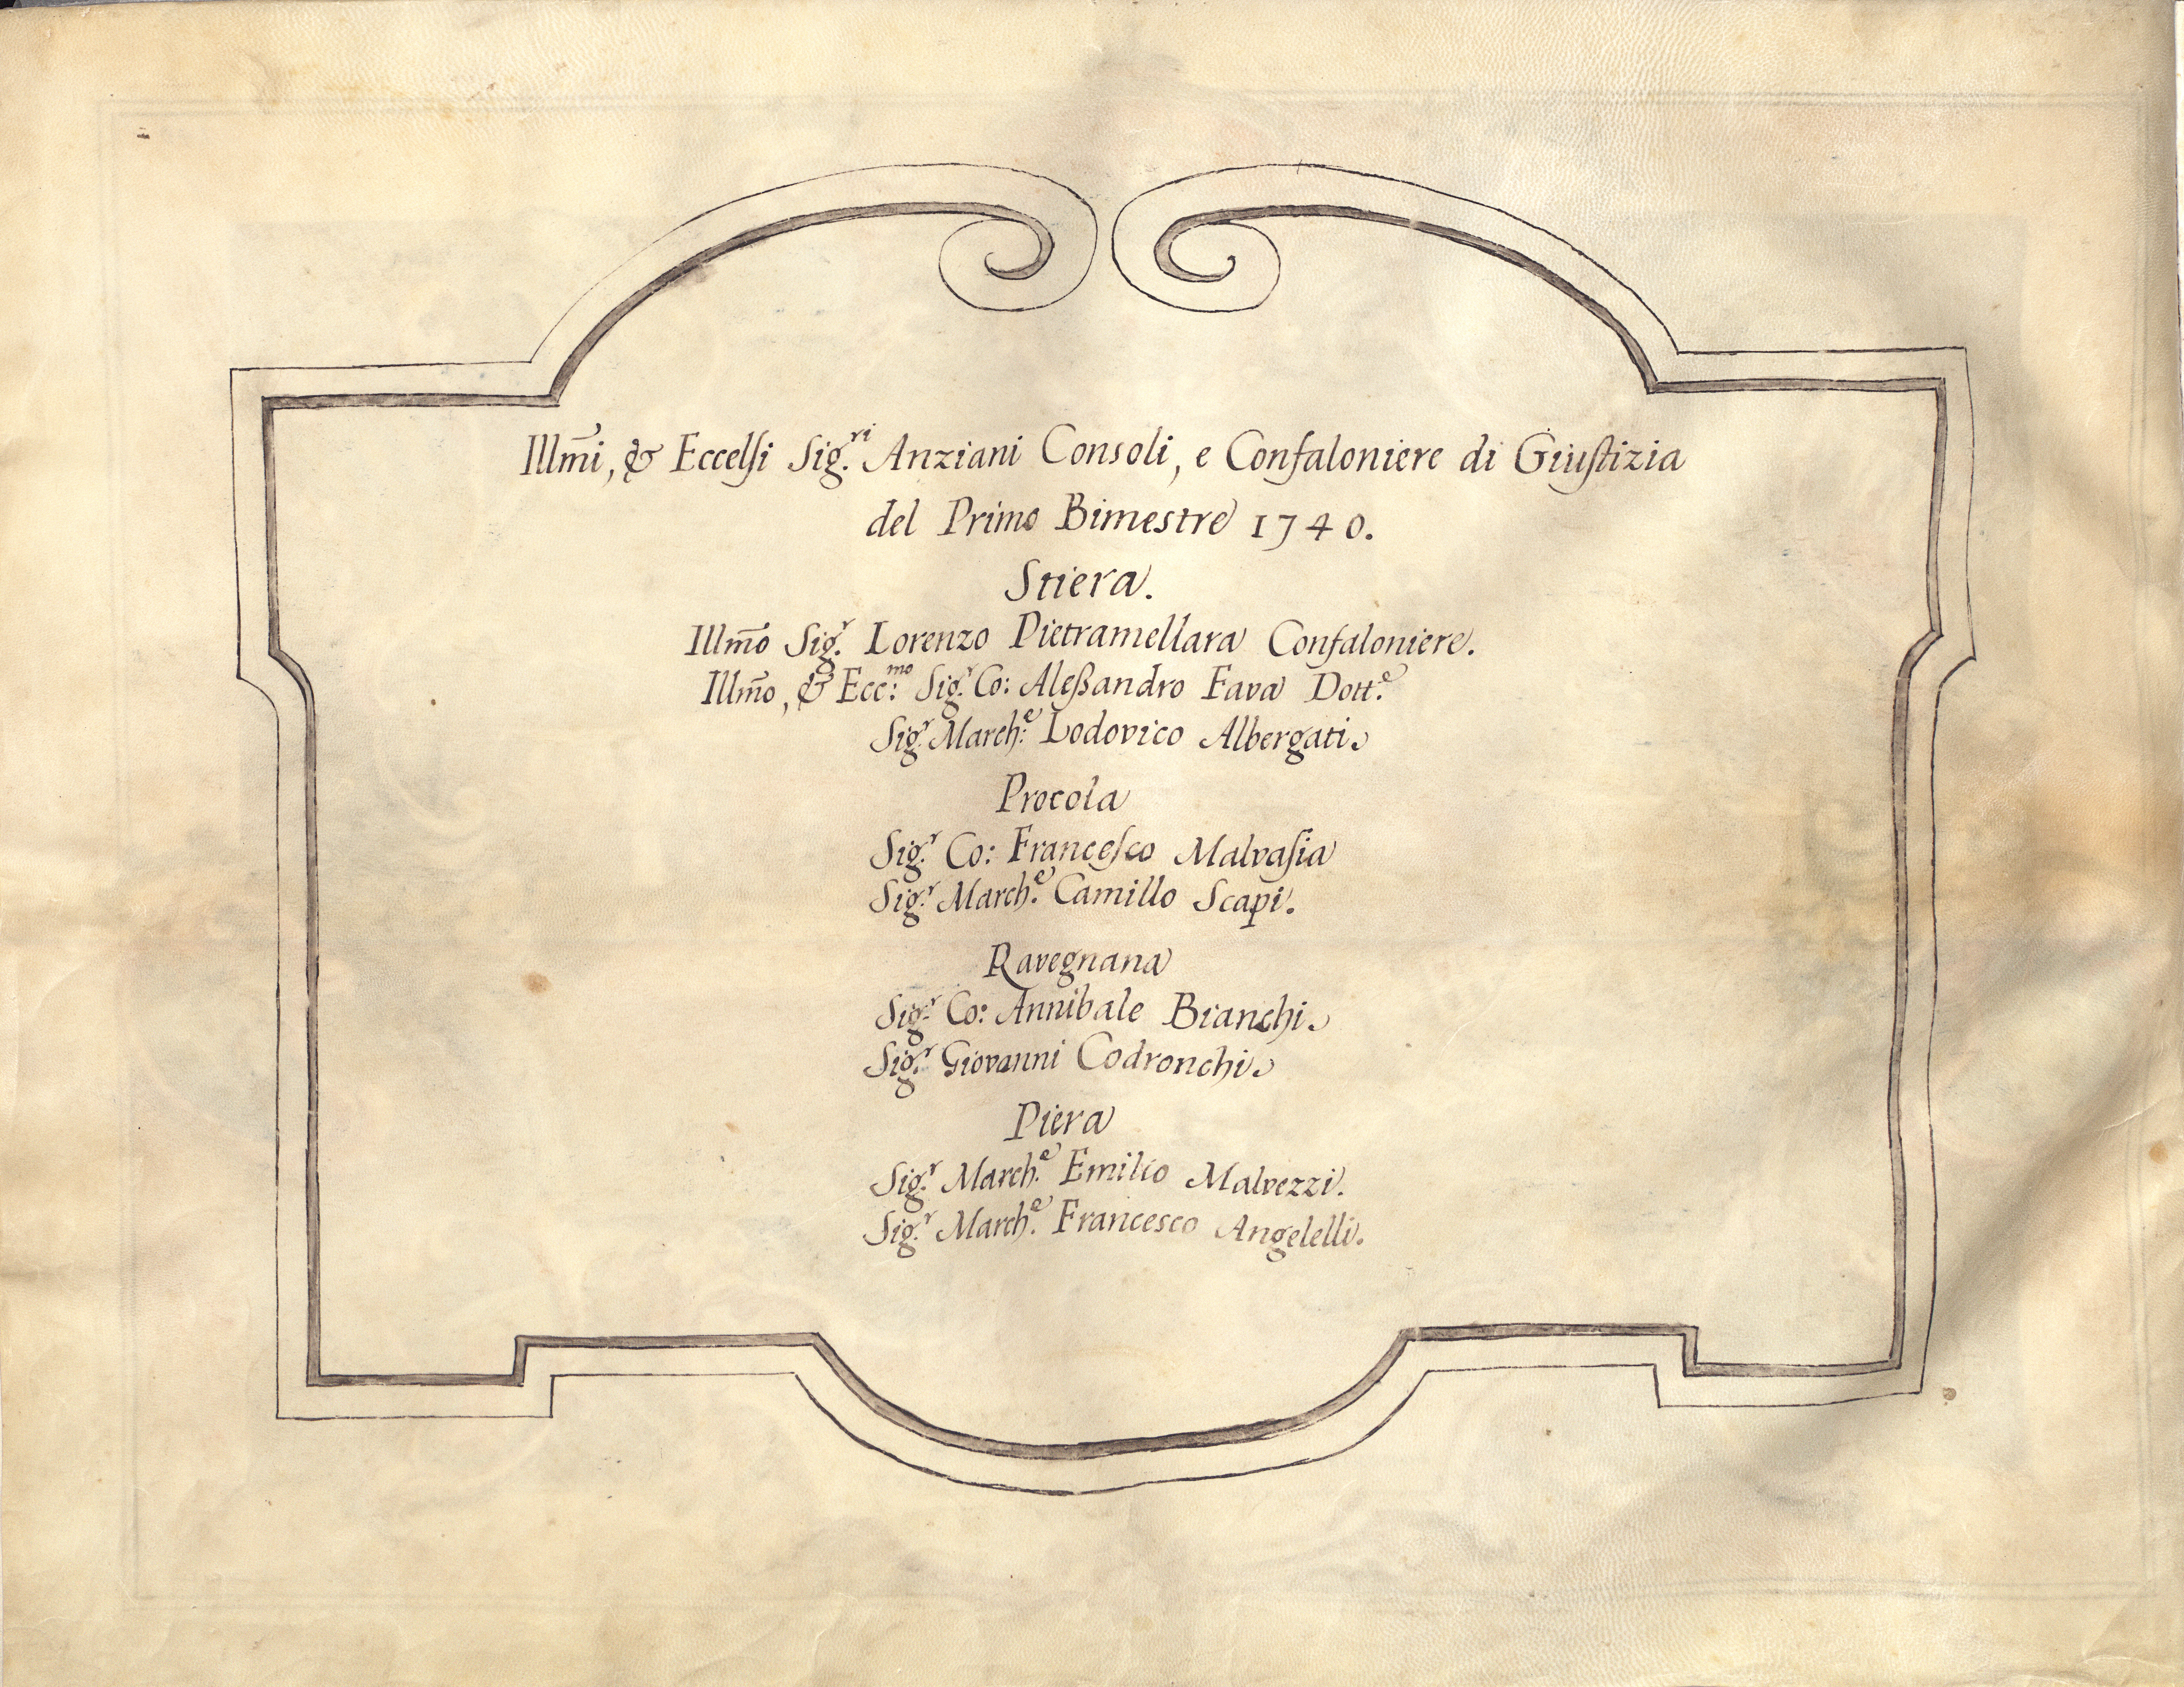 Illm̃i, & Eccelſi Sig.ri Anziani Consoli, e Confaloniere di Giuſtizia
del Primo Bimestre 1740.
Stiera.
Illm̃o Sig.r Lorenzo Pietramellara Confaloniere.
Illm̃o, & Ecc:mo Sig.r Co: Aleßandro Fava Dott:e
Sig.r March:e Lodovico Albergati.
Procola
Sig.r Co: Franceſco Malvaſia
Sig.r March.e Camillo Scapi.
Ravegnana
Sig.r Co: Annibale Bianchi.
Sig.r Giovanni Codronchi.
Piera
Sig.r March.e Emilio Malvezzi.
Sig.r March.e Francesco Angelelli.